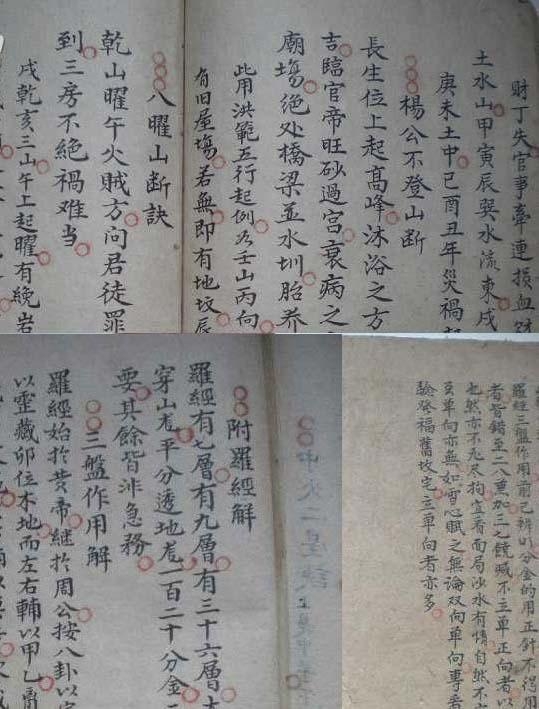 財丁失官事牽連損血財
土水山甲寅辰巽水流東戌
庚未土中己酉丑年災禍
楊公不登山断
長生位上起髙峰沐浴之方
吉臨官帝旺砂過宮衰病之
廟塲絶处橋梁並水圳胎养
此用洪範五行起例如壬山丙向
有旧屋塲若無即有地坟辰
八曜山断訣
乾山曜午火賊方向君徒罪
到三房不絶禍难当
戌乾亥三山午上起曜有繞岩
中火二星訣
附羅經解
羅經有七層有九層有三十六層
穿山虎平分透地龙一百二十分金
要其餘皆非急務
三盤作用解
羅經始於黄帝継於周公按八卦以
以霊藏卯位木地而左右輔以甲乙
羅經三盤作用前已辨明分金的用正針不得用
者皆錯至一八熏加三之饒喊不立單正向者以
也然亦不冺尺拘宜看面局沙水有情自然不
至單向亦無如雪心賦之無論双向單向專看
驗發福舊坟定立單向者亦多